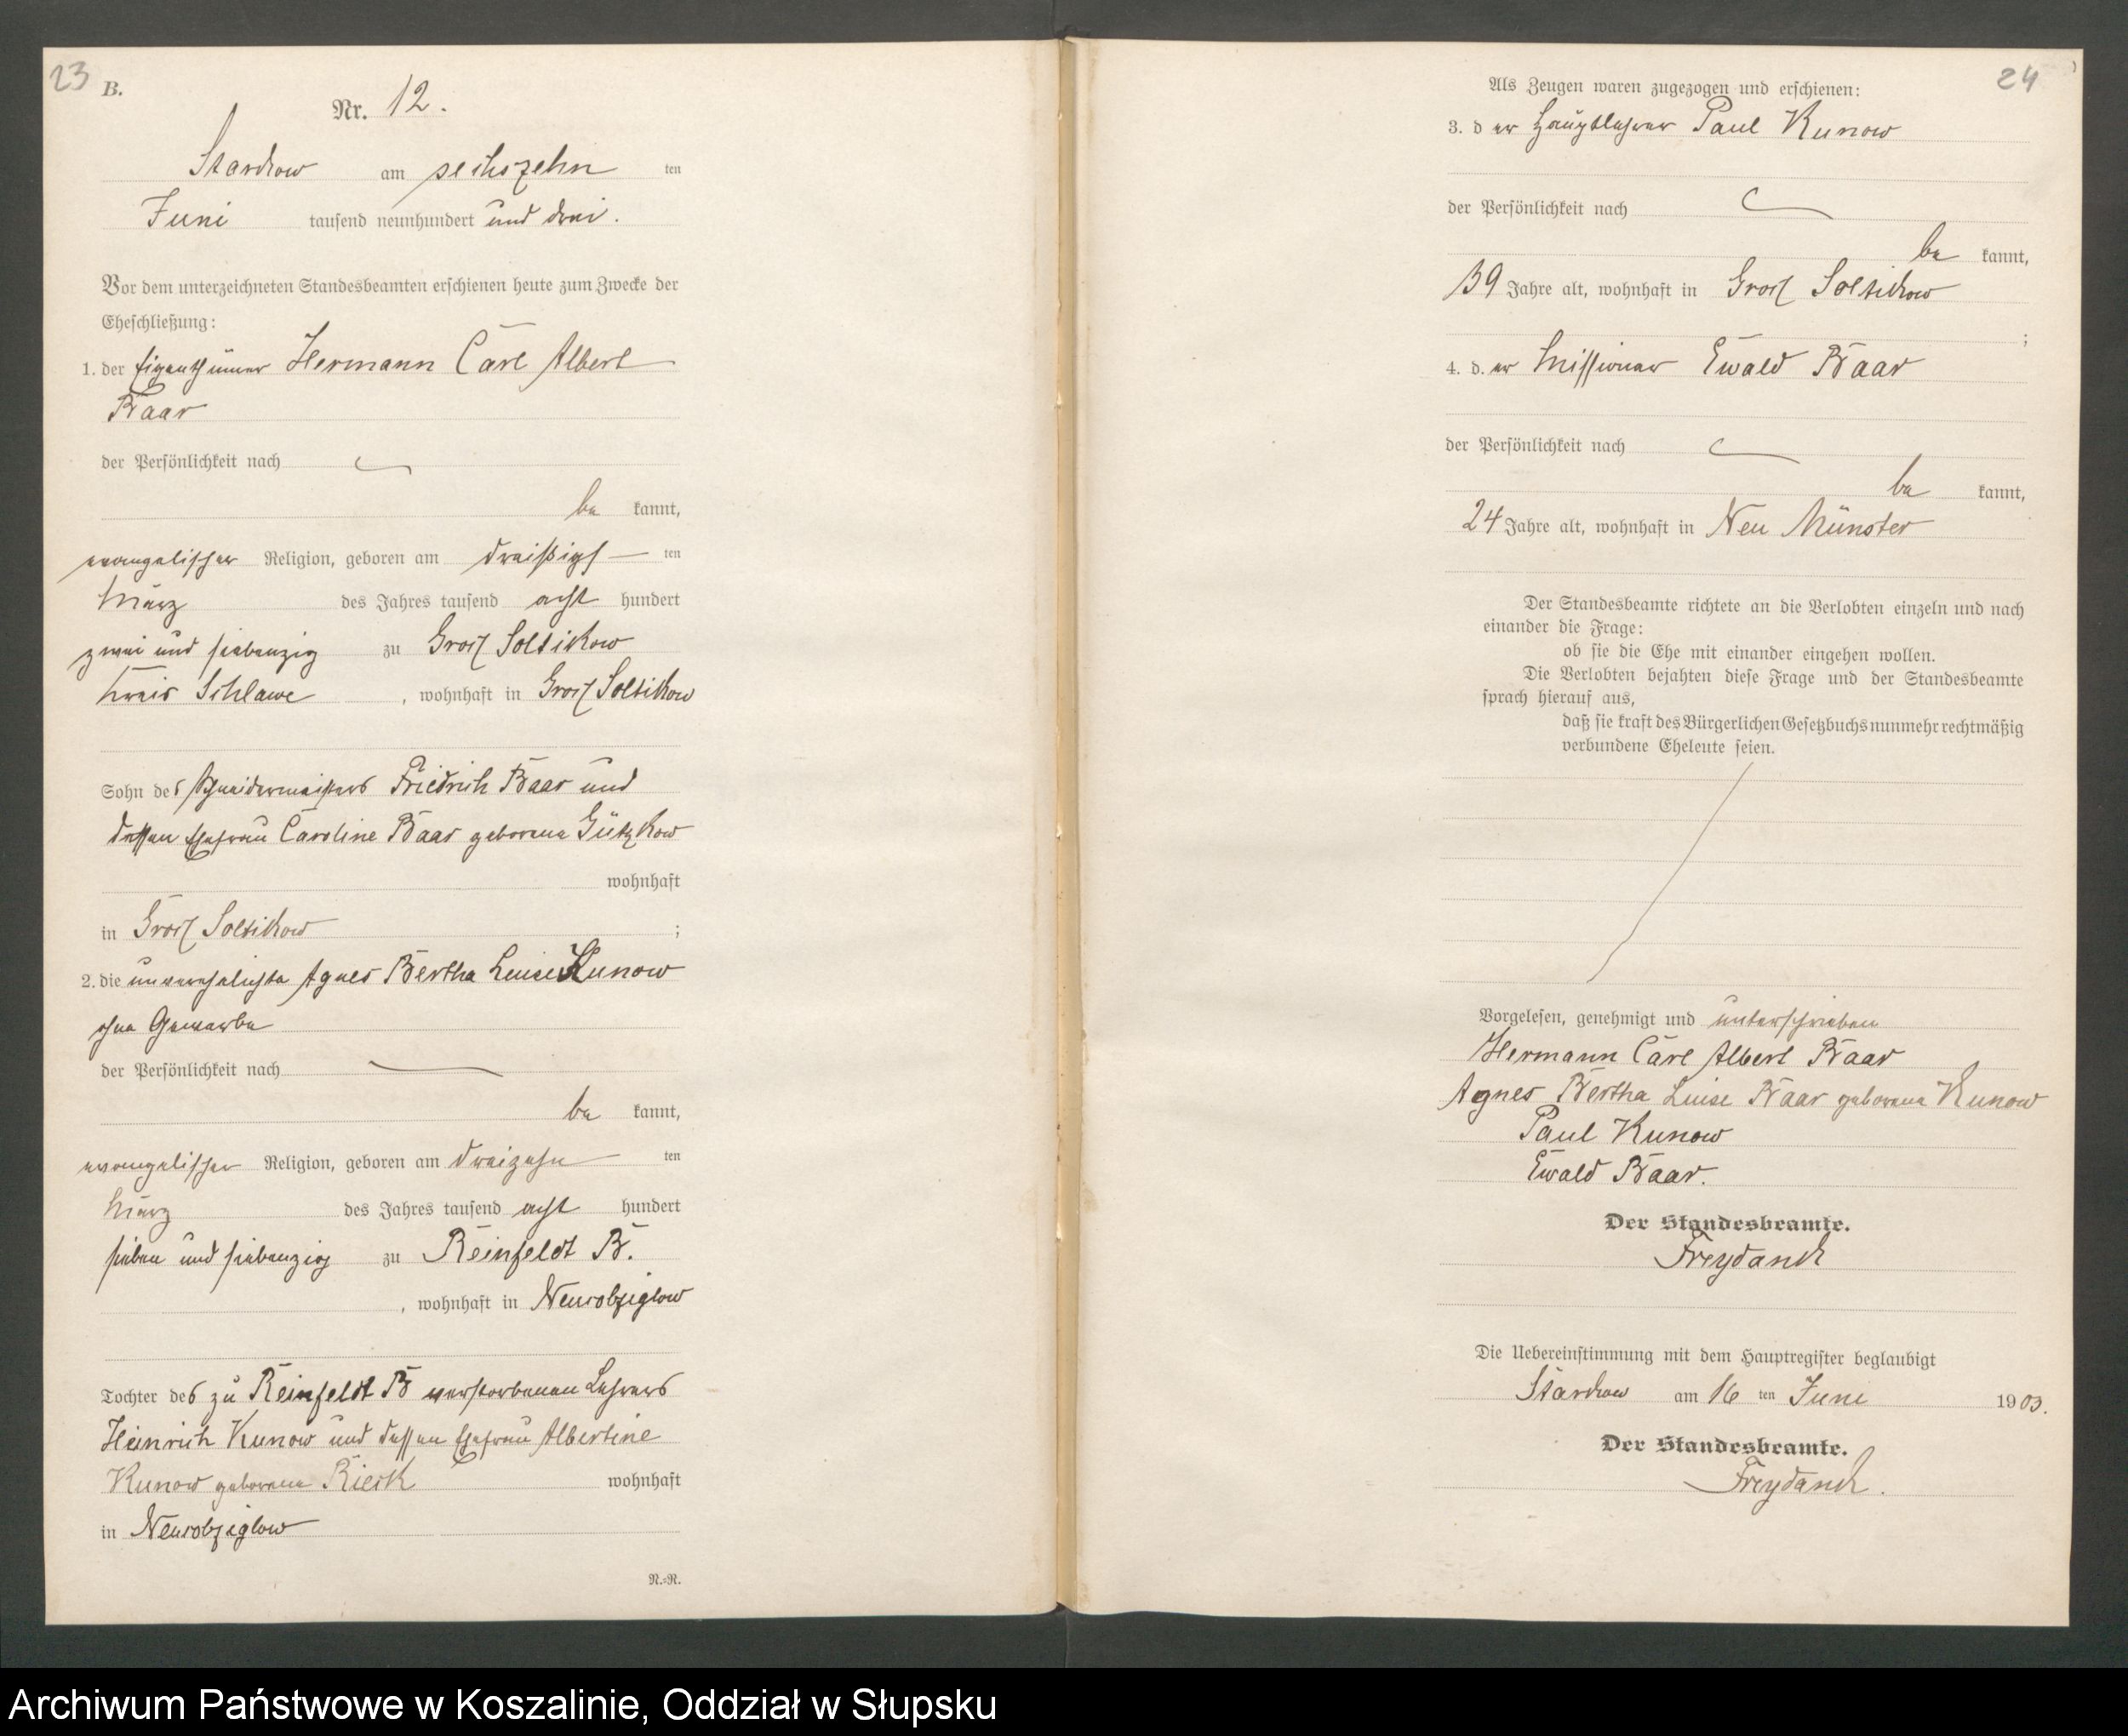 23
B.
Nr. 12.
Starkow am sechszehn ten
Juni tausend neunhundert und drei.
Vor dem unterzeichneten Standesbeamten erschienen heute zum Zwecke der
Eheschließung:
1. der Eigenthümer Hermann Carl Albert
Baar
der Persönlichkeit nach
be kannt,
evangelischer Religion, geboren am dreißigs ten
März des Jahres tausend acht hundert
zwei und siebenzig zu Groß Soltikow
Kreis Schlawe, wohnhaft in Groß Soltikow
Sohn des Schneidermeisters Friedrich Baar und
dessen Ehefrau Caroline Baar geborene Gützkow
wohnhaft
in Groß Soltikow;
2. die unverehelichte Agnes Bertha Luise Kunow
ohne Gewerbe
der Persönlichkeit nach
be kannt,
evangelischer Religion, geboren am dreizehn ten
März des Jahres tausend acht hundert
sieben und siebenzig zu Reinfeldt B.
, wohnhaft in Neukolziglow
Tochter des zu Reinfeldt B verstorbenen Lehrers
Heinrich Kunow und dessen Ehefrau Albertine
Kunow geborene wohnhaft
in Neukolziglow
N.=N.
24
Als Zeugen waren zugezogen und erschienen:
3. d er Hauptlehrer Paul Kunow
der Persönlichkeit nach
be kannt,
39 Jahre alt, wohnhaft in Groß Soltikow
;
4. d. er Missionar Ewald Baar
der Persönlichkeit nach
be kannt,
24 Jahre alt, wohnhaft in Neu Münster
Der Standesbeamte richtete an die Verlobten einzeln und nach
einander die Frage:
ob sie die Ehe mit einander eingehen wollen.
Die Verlobten bejahten diese Frage und der Standesbeamte
sprach hierauf aus,
daß sie kraft des Bürgerlichen Gesetzbuchs nunmehr rechtmäßig
verbundene Eheleute seien.
Vorgelesen, genehmigt und unterschrieben
Hermann Carl Albert Baar
Agnes Bertha Luise Baar geborene Kunow
Paul Kunow
Ewald Baar.
Der Standesbeamte.
Freydanck
Die Uebereinstimmung mit dem Hauptregister beglaubigt
Starkow am 16 ten Juni 1903.
Der Standesbeamte.
Freydanck.
Archiwum Państwowe w Koszalinie, Oddział w Słupsku